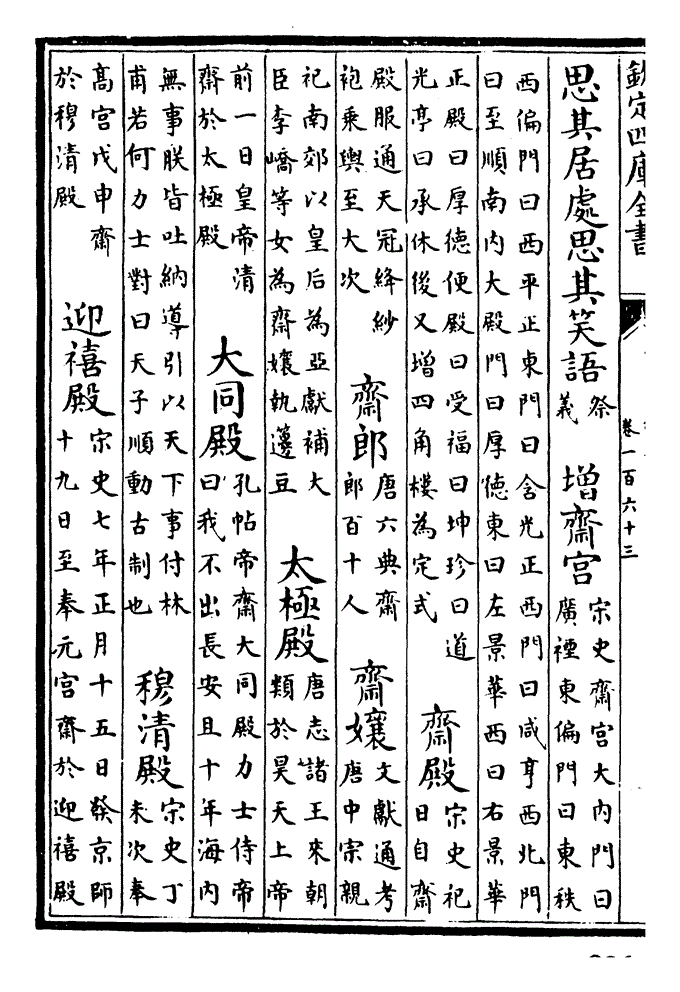 欽定四庫全書
卷一百六十三
思其居處思其笑語
祭
義
增齋宮
宋史齋宮大内門曰
廣禋東偏門曰東秩
西偏門曰西平正東門曰含光正西門曰咸亨西北門
曰至順南内大殿門曰厚德東曰左景華西曰右景華
正殿曰厚德便殿曰受福曰坤珍曰道
光亭曰承休後又增四角樓為定式
齋殿
宋史祀
日自齋
殿服通天冠絳紗
袍乘輿至大次
齋郎
唐六典齋
郎百十人
齋孃
文獻通考
唐中宗親
祀南郊以皇后為亞獻補大
臣李嶠等女為齋孃執籩豆
太極殿
唐志諸王來朝
類於昊天上帝
前一日皇帝清
齋於太極殿
大同殿
孔帖帝齋大同殿力士侍帝
曰我不出長安且十年海内
無事朕皆吐納導引以天下事付林
甫若何力士對曰天子順動古制也
穆清殿
宋史丁
未次奉
高宮戊申齋
於穆清殿
迎禧殿
宋史七年正月十五日發京師
十九日至奉元宮齋於迎禧殿